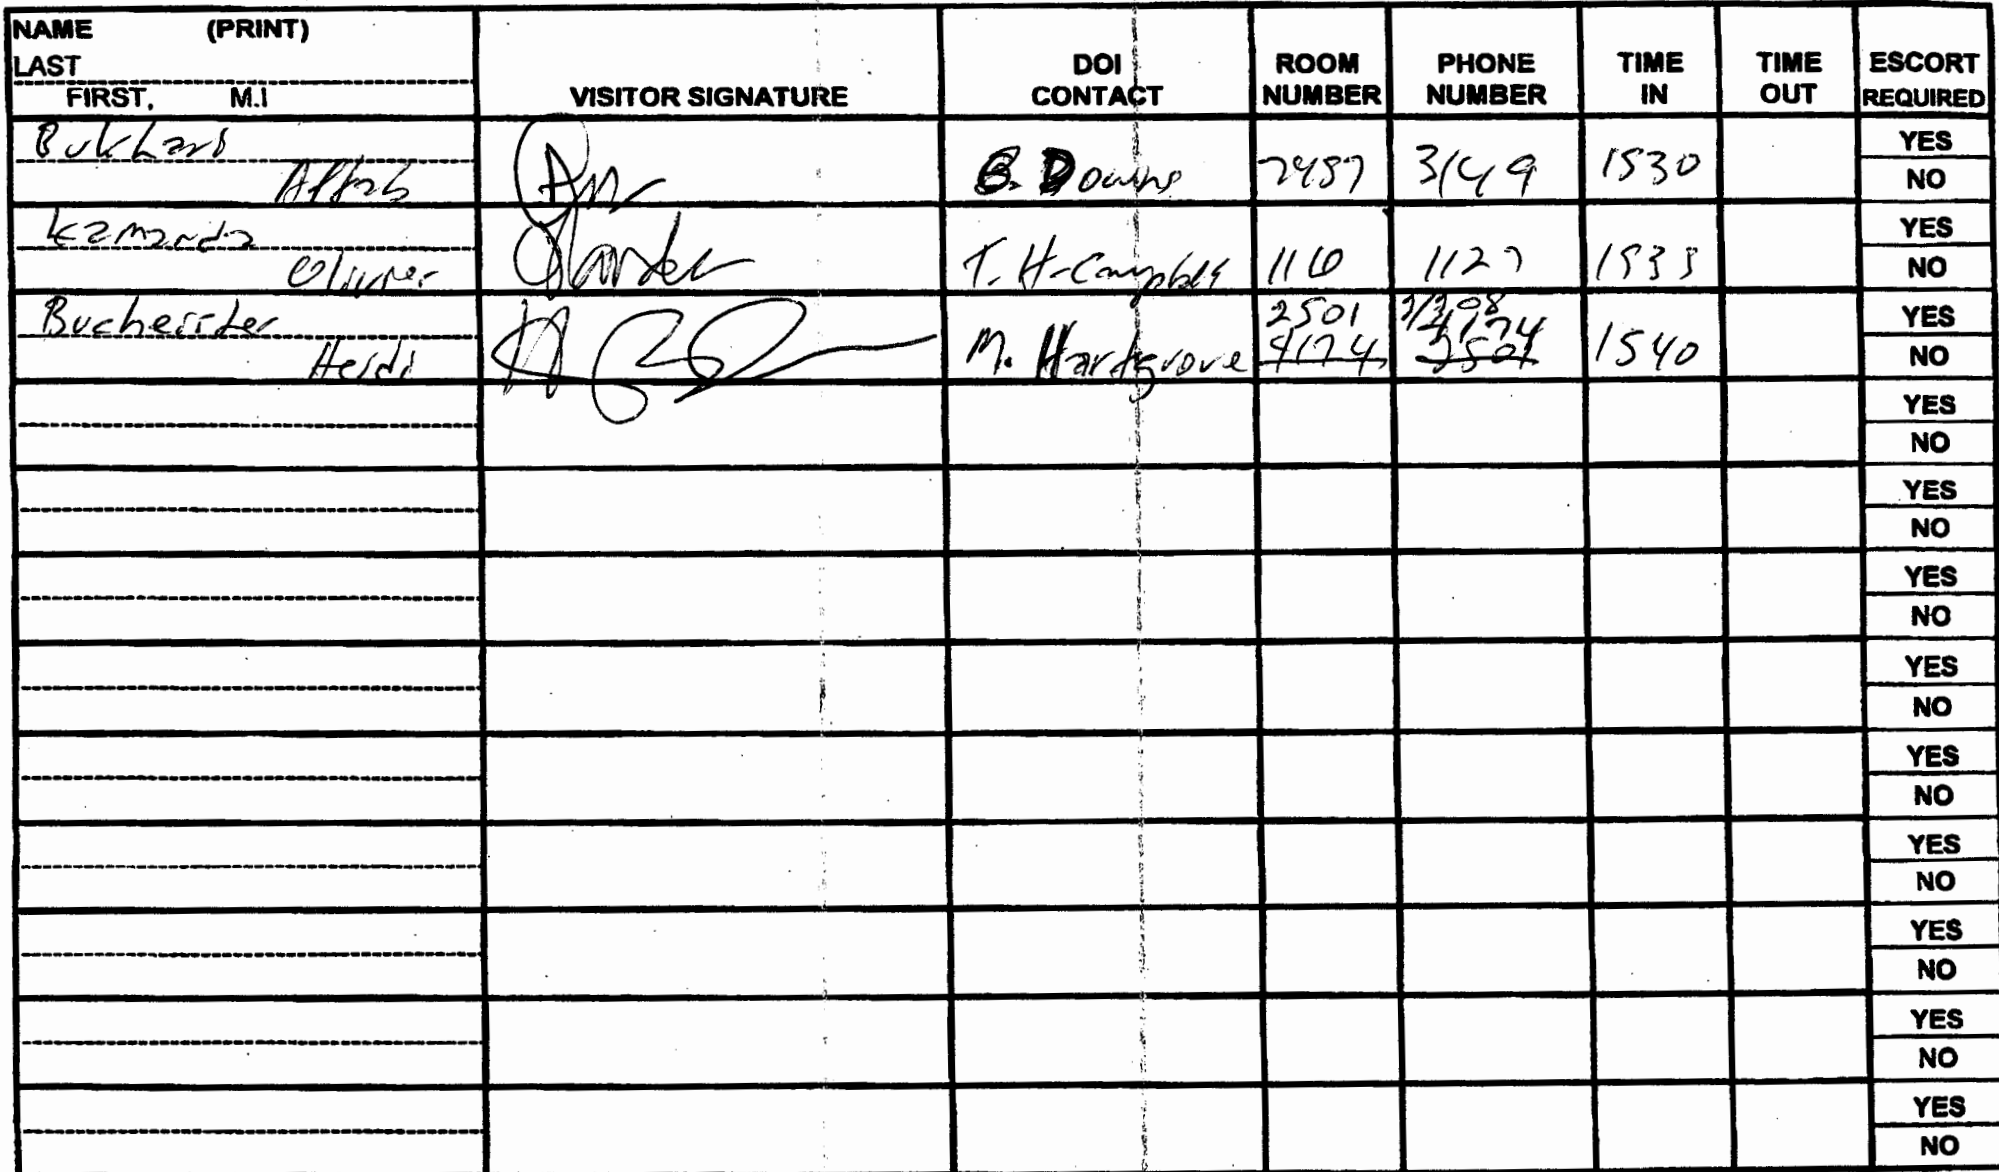 NAME (PRINT)
LAST
FIRST, M.I
VISITOR SIGNATURE
DOI CONTACT
ROOM NUMBER
PHONE NUMBER
TIME IN
TIME OUT
ESCORT REQUIRED
Bukhari
Aftab
B. Downs
3149
1530
YES
NO
Kamanda
Oliver
T. H-Campbell
1127
YES
NO
Bucheister
Heidi
M. Hardgrove
2501
4174
4174
2501
1540
YES
NO
YES
NO
YES
NO
YES
NO
YES
NO
YES
NO
YES
NO
YES
NO
YES
NO
YES
NO